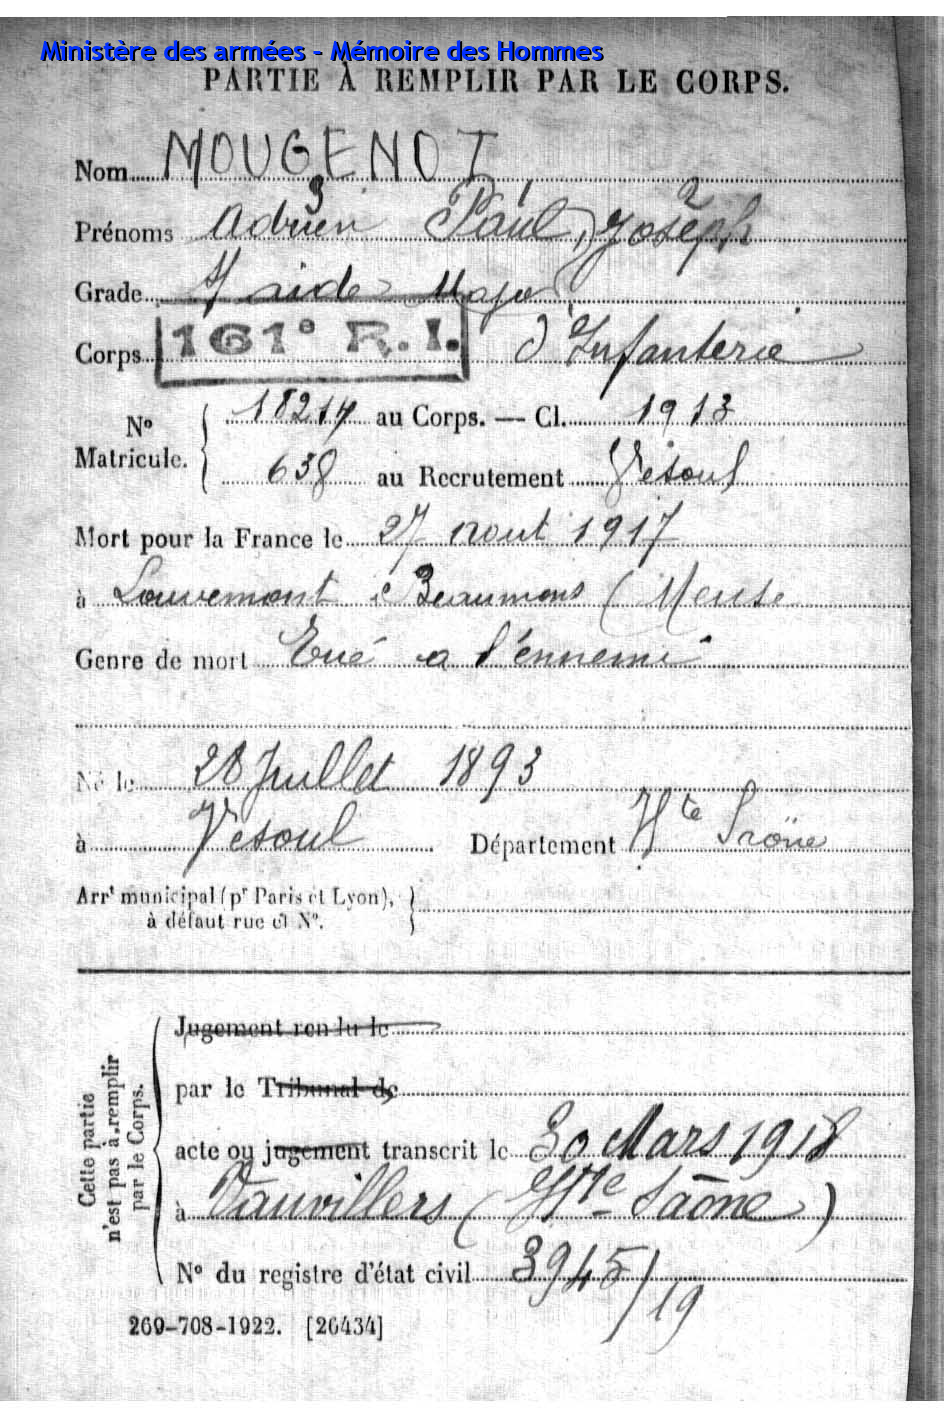 Ministère des armées - Mémoire des Hommes
PARTIE À REMPLIR PAR LE CORPS.
Nom MOUGENOT
3 1 2
Prénoms Adrien Paul, Joseph
Grade S/ aide Major
Corps 161e R.I. d'Infanterie
No Matricule. 18214 au Corps. — Cl. 1913
638 au Recrutement Vesoul
Mort pour la France le 27 aout 1917
à Louvemont Beaumons (Meuse
Genre de mort Tué a l'ennemi
Né le 28 Juillet 1893
à Vesoul Département Hte Saône
Arrt municipal (pr Paris et Lyon),
à défaut rue et No.
Cette partie
n'est pas à remplir
par le Corps.
Jugement rendu le
par le Tribunal de
acte ou jugement transcrit le 30 Mars 1918
à Vauvillers (Hte Saône)
No du registre d'état civil 3945/19
269-708-1922. [26434]